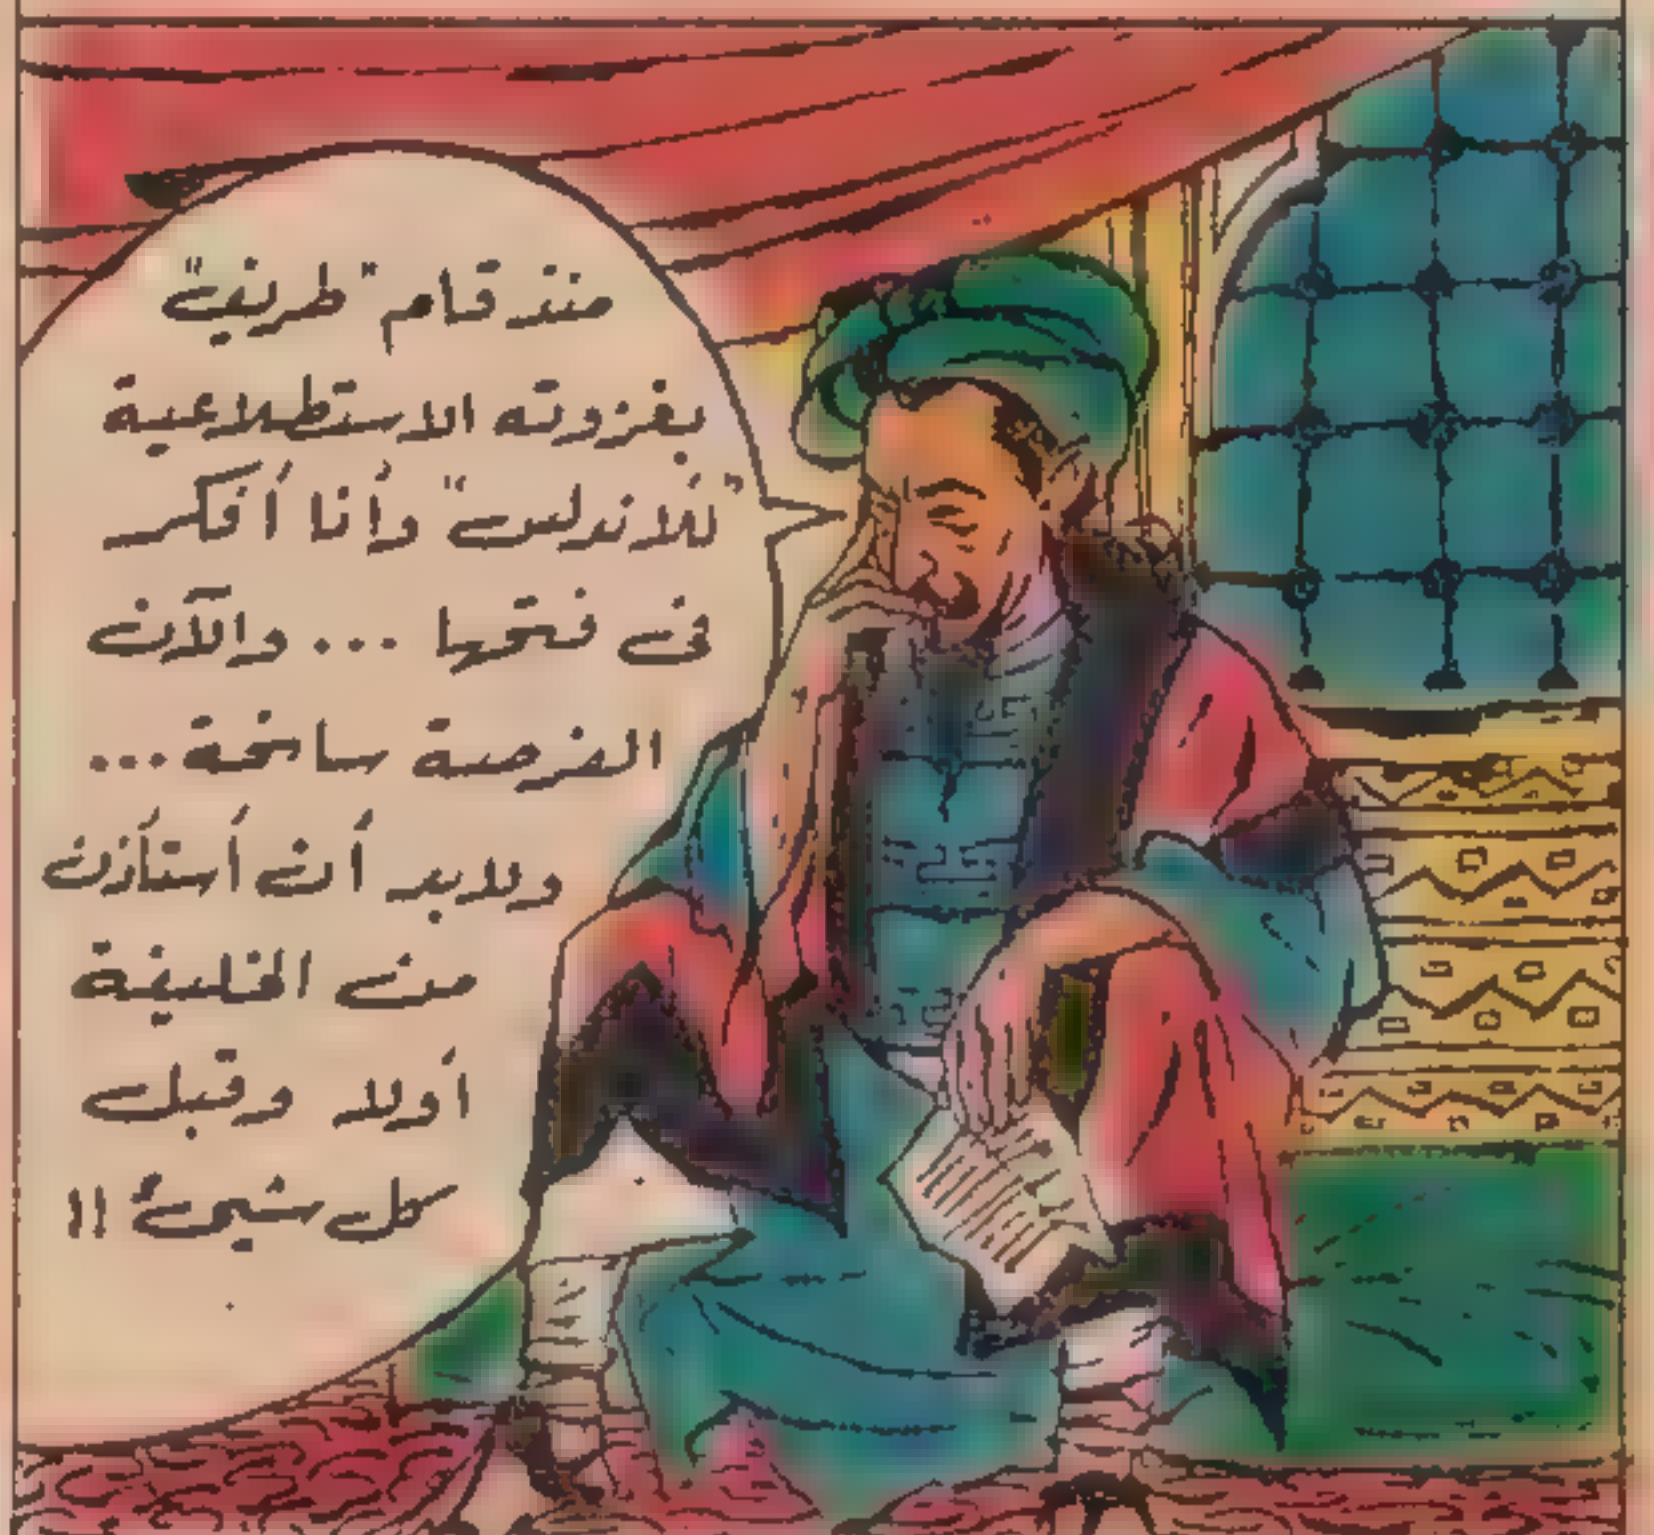 منذ قام "طريف"
بغزوته الاستطلاعية
"للاندلس" وأنا أفكر
فى فتحها ... والآن
الفرصة سانحة ...
ولابد أن أستأذن
من الخليفة
أولا وقبل
كل شيئ !!